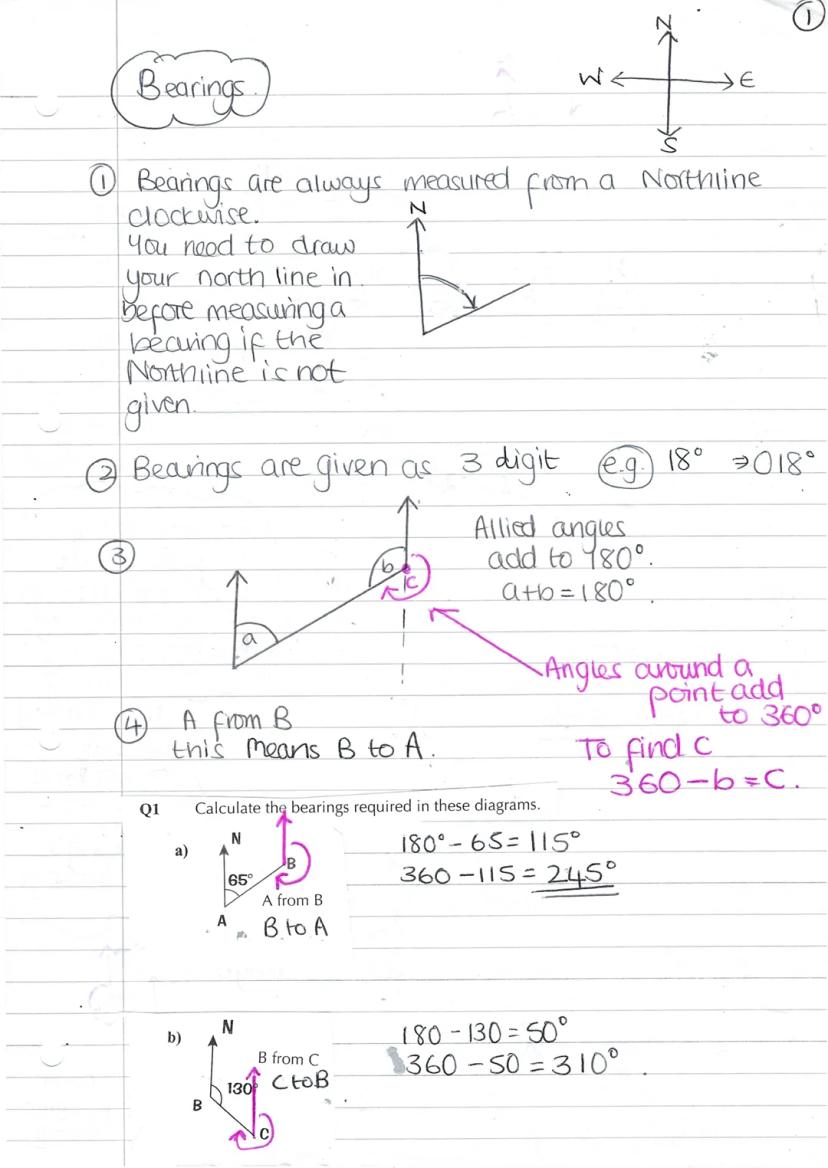 1
N
W E
S
Bearings.
① Bearings are always measured from a Northline
clockwise.
N
You need to draw
your north line in
before measuring a
bearing if the
Northline is not
given.
② Bearings are given as 3 digit e.g. 18° ⇒018°
③
Allied angles
add to 180°.
a+b=180°.
b
c
a
Angles around a
point add
to 360°
To find C
360-b=C.
④ A from B
this means B to A.
Q1 Calculate the bearings required in these diagrams.
a) N
B
65°
A from B
A
B to A
180°-65=115°
360-115=245°
b) N
B from C
130°
C to B
B
C
180-130=50°
360-50=310°.